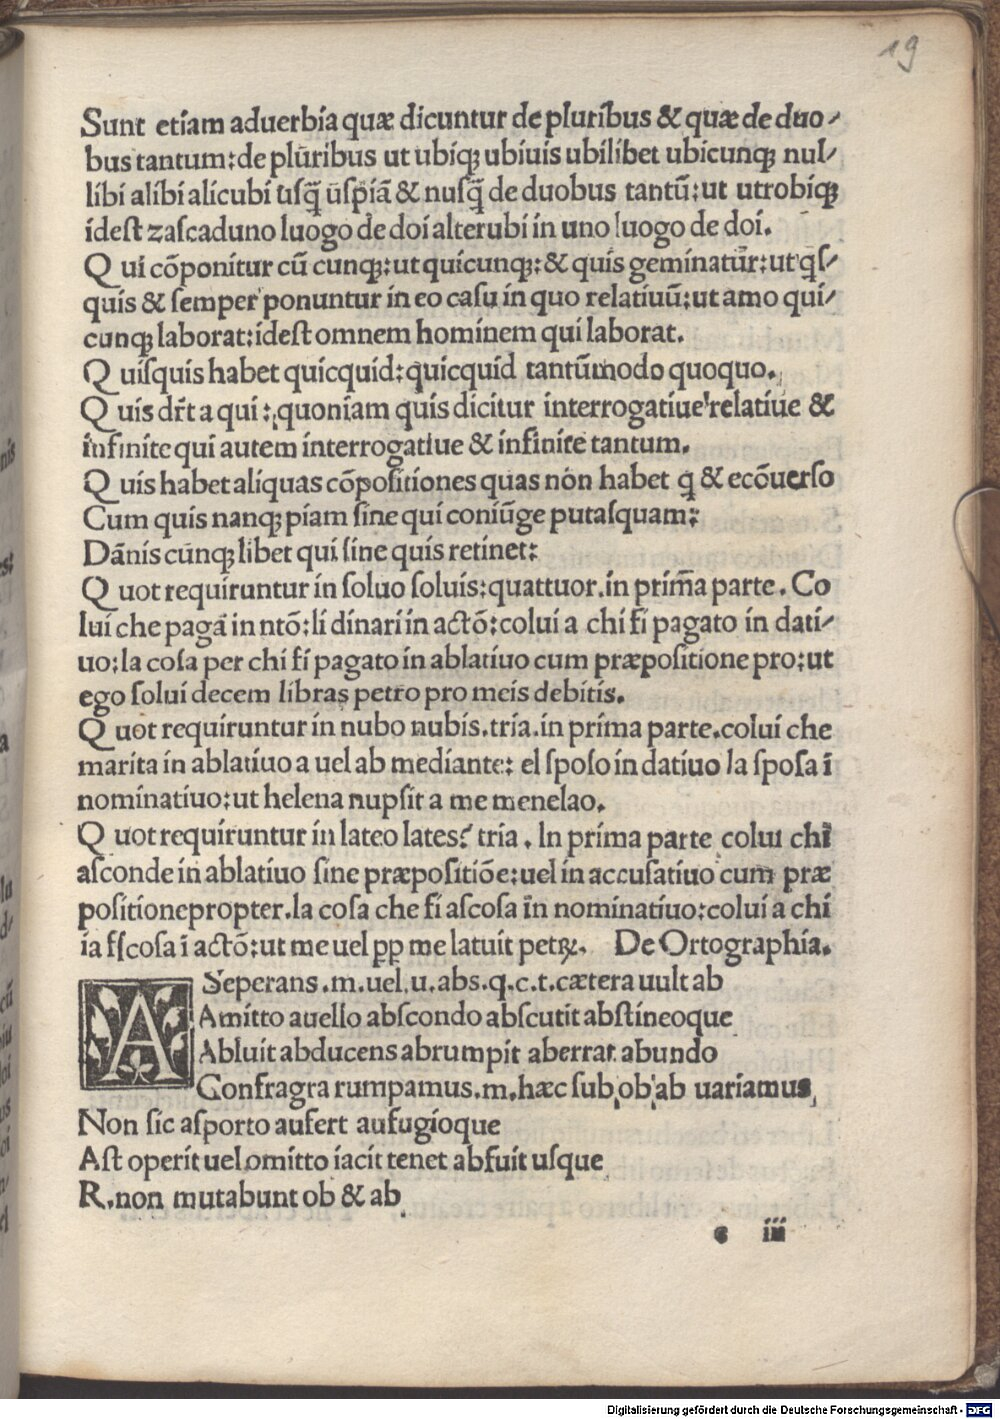 19
Sunt etiam aduerbia quæ dicuntur de pluribus & quæ de duo-
bus tantum: de plũribus ut ubiq; ubiuis ubilibet ubicunq; nul-
libi alibi alicubi usq̃ uspiã & nusq̃ de duobus tantũ: ut utrobiq;
idest zascaduno luogo de doi alterubi in uno luogo de doi.
Q ui cõponitur cũ cunq;: ut quicunq;: & quis geminatur: ut qſ-
quis & semper ponuntur in eo casu in quo relatiuũ: ut amo qui-
cunq; laborat: idest omnem hominem qui laborat.
Q uisquis habet quicquid: quicquid tantũmodo quoquo.
Q uis dr̃t a qui: quoniam quis dicitur interrogatiue relatiue &
infinite qui autem interrogatiue & infinite tantum.
Q uis habet aliquas cõpositiones quas non habet q & ecõuerso
Cum quis nanq; piam sine qui coniũge putasquam:
Dãnis cũnq; libet qui sine quis retinet:
Q uot requiruntur in soluo soluis: quattuor. in prim̃a parte. Co
lui che pagã in ntõ: li dinari in actõ: colui a chi si pagato in dati-
uo: la cosa per chi si pagato in ablatiuo cum præpositione pro: ut
ego solui decem libras petro pro meis debitis.
Q uot requiruntur in nubo nubis. tria. in prima parte. colui che
marita in ablatiuo a uel ab mediante: el sposo in datiuo la sposa ĩ
nominatiuo: ut helena nupsit a me menelao.
Q uot requiruntur in lateo lates? tria. In prima parte colui chi
asconde in ablatiuo sine præpositiõe: uel in accusatiuo cum præ
positione propter. la cosa che si ascosa in nominatiuo: colui a chi
ia sscosa ĩ actõ: ut me uel pp me latuit petrꝝ. De Ortographia.
A Seperans .m. uel .u. abs .q.c.t. cætera uult ab
Amitto auello abscondo abscutit abstineoque
Abluit abducens abrumpit aberrat abundo
Confragra rumpamus .m. hæc sub ob ab uariamus
Non sic asporto aufert aufugioque
Ast operit uel omitto iacit tenet abfuit usque
R. non mutabunt ob & ab
c iii
Digitalisierung gefördert durch die Deutsche Forschungsgemeinschaft - DFG